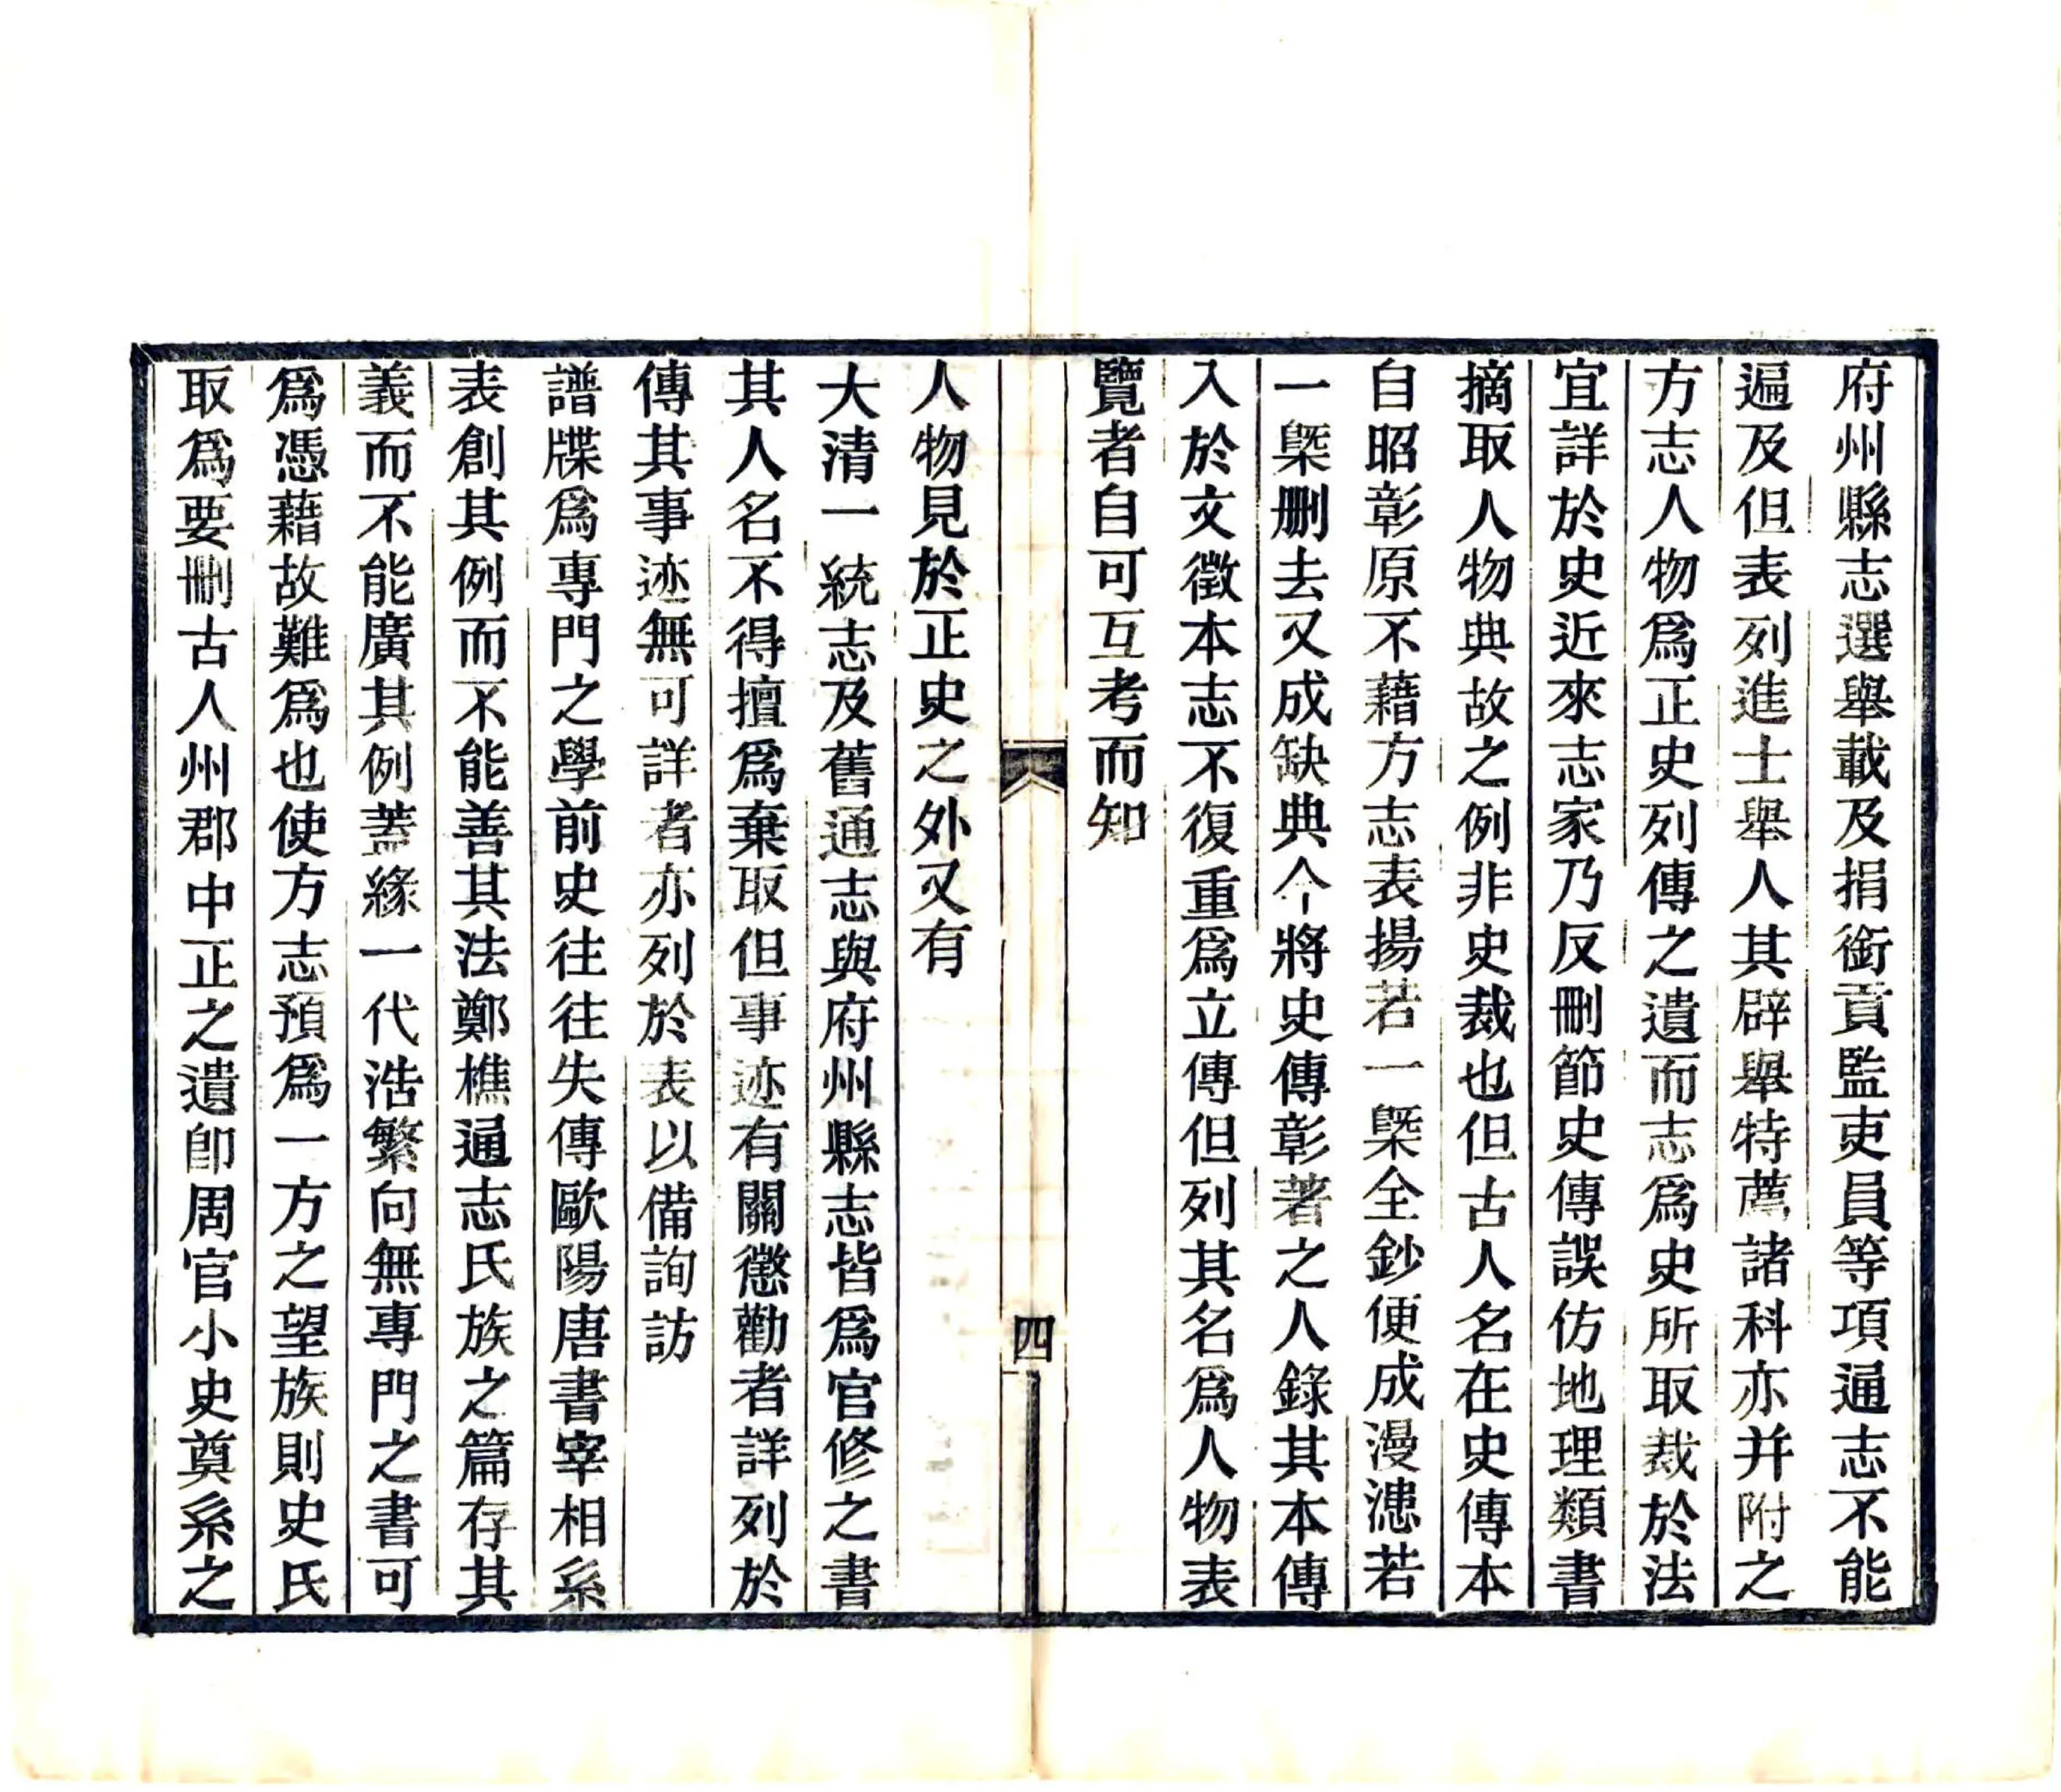 府州縣志選舉載及捐銜貢監吏員等項通志不能
遍及但表列進士舉人其辟舉特薦諸科亦并附之
方志人物爲正史列傳之遺而志爲史所取裁於法
宜詳於史近來志家乃反刪節史傳誤仿地理類書
摘取人物典故之例非史裁也但古人名在史傳本
自昭彰原不藉方志表揚若一槩全鈔便成漫漶若
一槩刪去又成缺典今將史傳彰著之人錄其本傳
入於文徵本志不復重爲立傳但列其名爲人物表
覽者自可互考而知
四
人物見於正史之外又有
大清一統志及舊通志與府州縣志皆爲官修之書
其人名不得擅爲棄取但事迹有關懲勸者詳列於
傳其事迹無可詳者亦列於表以備詢訪
譜牒爲專門之學前史往往失傳歐陽唐書宰相系
表創其例而不能善其法鄭樵通志氏族之篇存其
義而不能廣其例蓋緣一代浩繁向無專門之書可
爲憑藉故難爲也使方志預爲一方之望族則史氏
取爲要刪古人州郡中正之遺卽周官小史奠系之